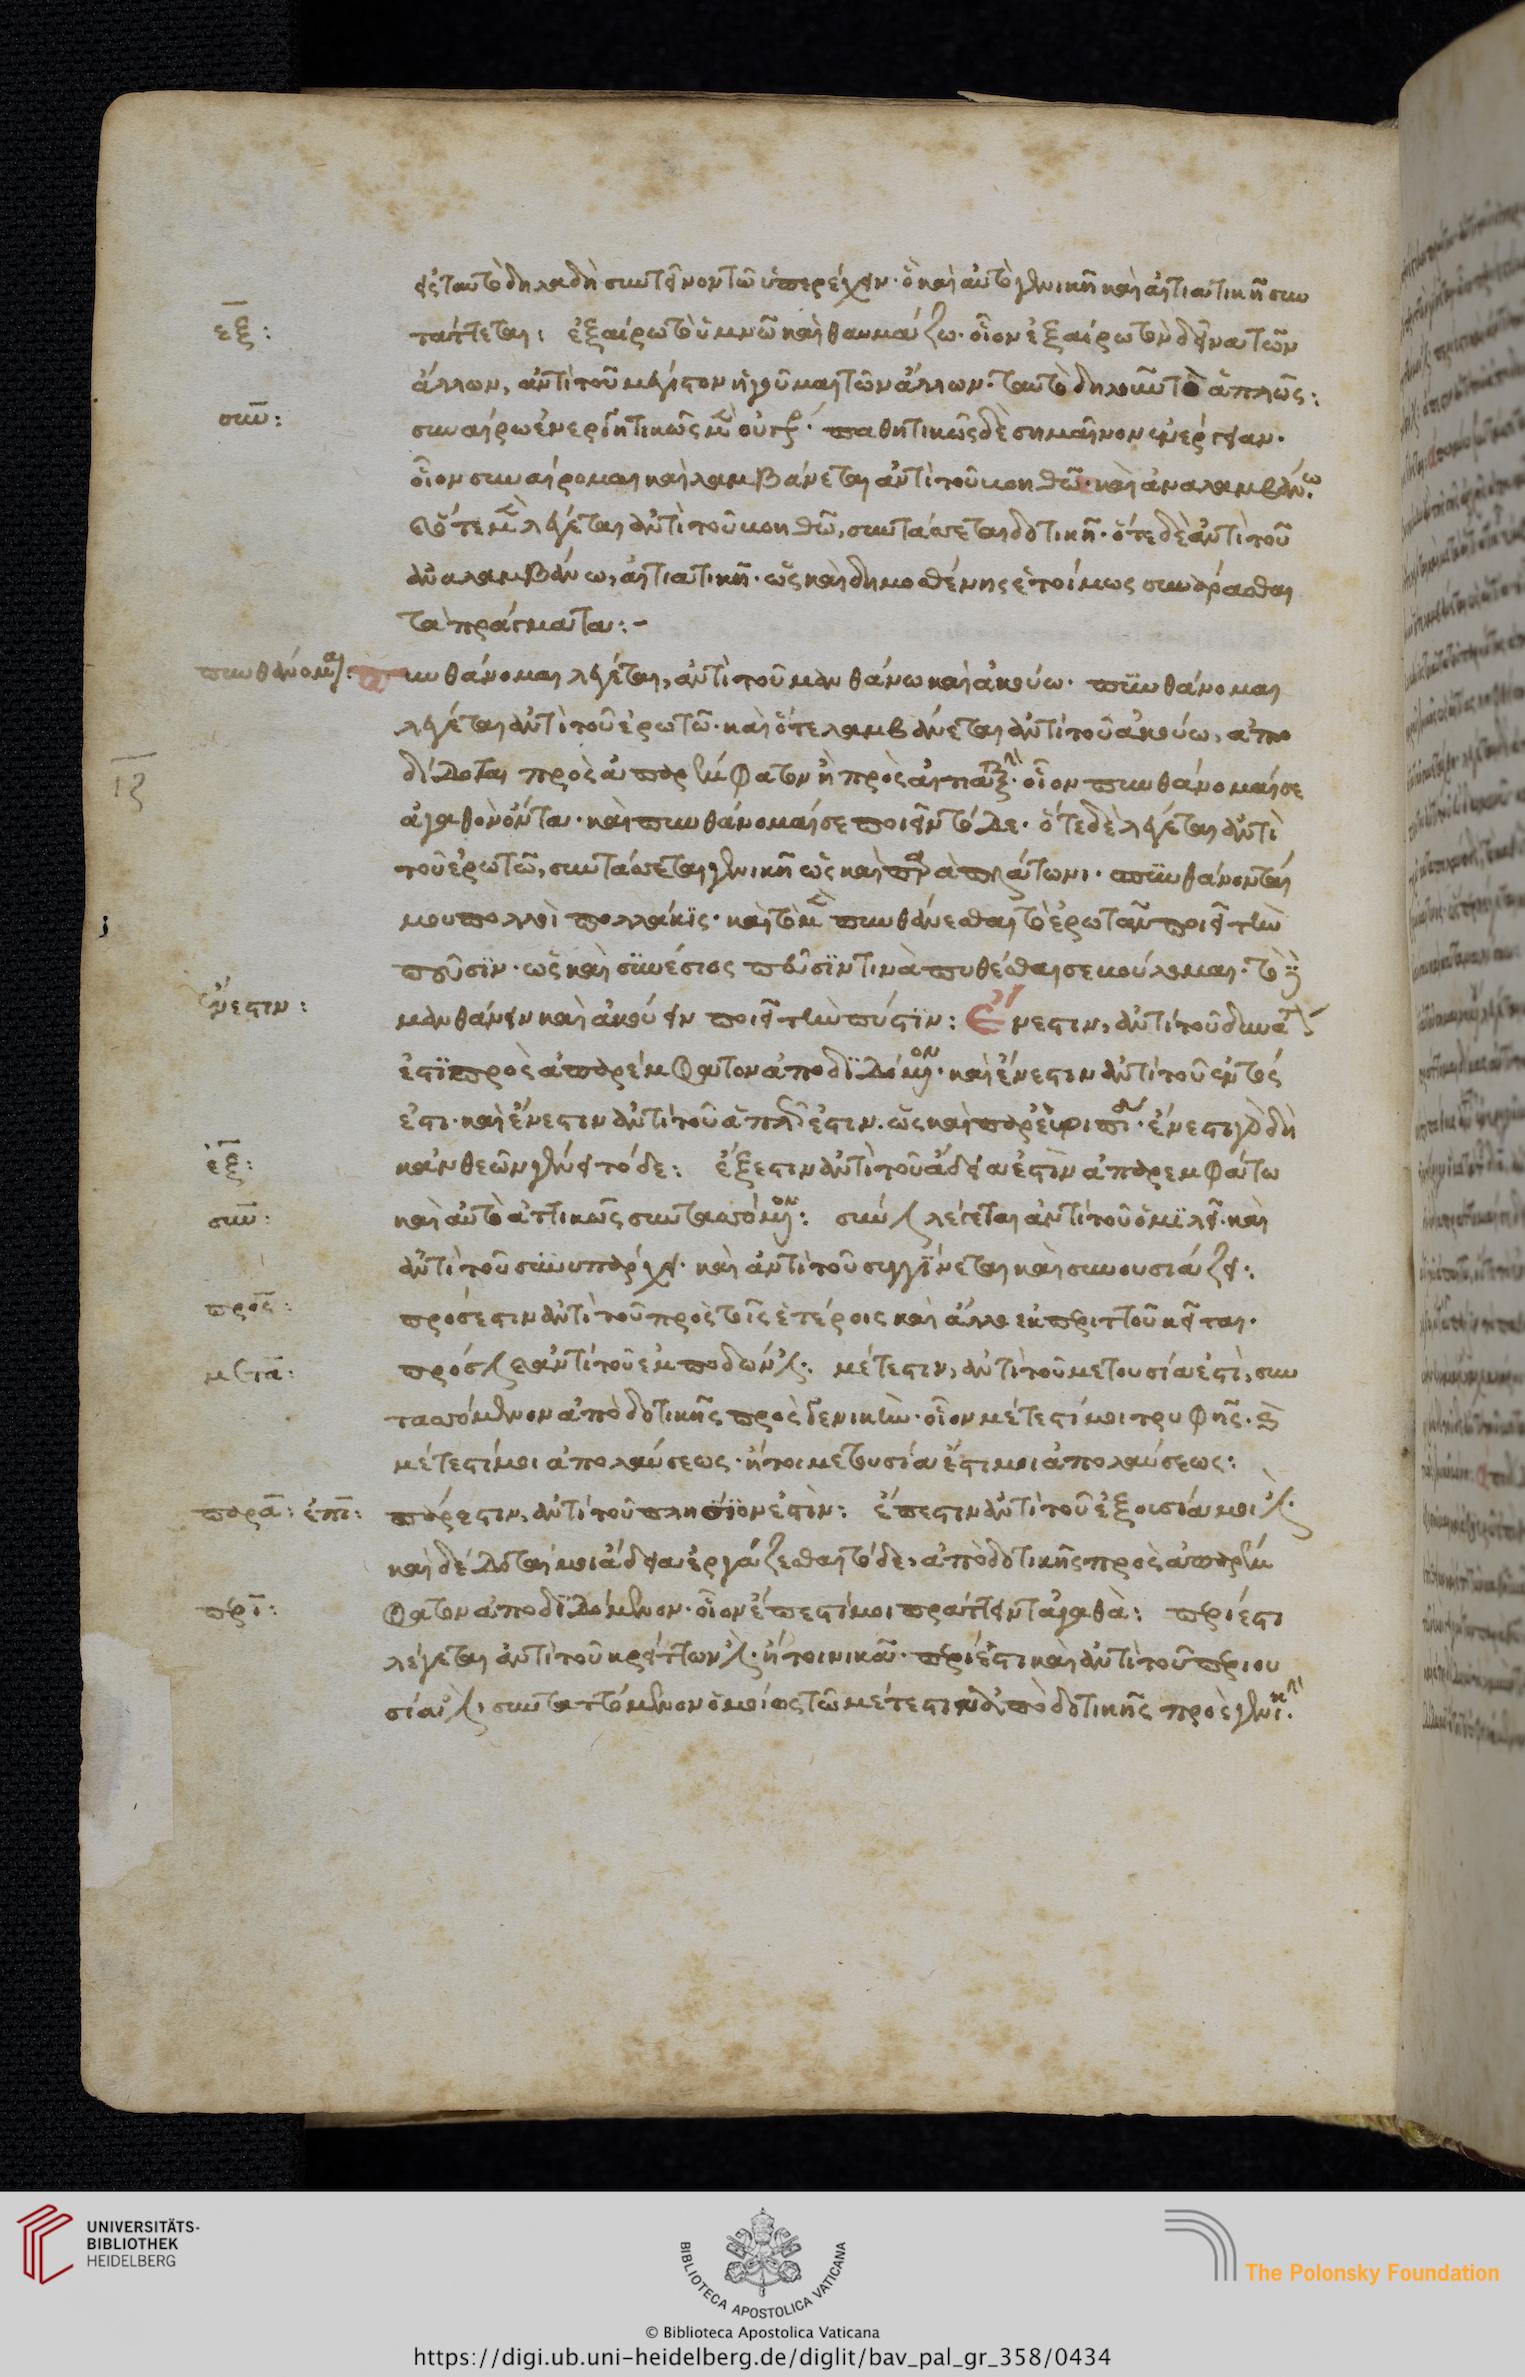 εἰς ταυτὸ δηλαδὴ συντεῖνον τῶ ὑπερέχειν· ὃ καὶ αὐτὸ γενικῆ καὶ αἰτιατικῆ συν
εξ:
τάττεται: ἐξαίρω τὸ ὑμνῶ καὶ θαυμάζω· οἷον ἐξαίρω τὸν δεῖνα τῶν
ἄλλων, ἀντὶ τοῦ μεῖζον ἡγοῦμαι τῶν ἄλλων· ταυτὸ δηλοῦν τὸ ἁπλῶς:
συν:
συναίρω ἐνεργητικῶς μὲν οὐκ · παθητικῶς δὲ σημαῖνον ἐνέργειαν·
οἷον συναίρομαι καὶ λαμβάνεται ἀντὶ τοῦ βοηθῶ· καὶ ἀναλαμβάνω·
ὅτε μὲν λέγεται ἀντὶ τοῦ βοηθῶ, συντάσσεται δοτικῆ· ὅτε δὲ ἀντὶ τοῦ
ἀναλαμβάνω, αἰτιατικῆ· ὡς καὶ δημοσθένης ἑτοίμως συνάρασθαι
τὰ πράγματα:-
πυνθάνομαι:
πυνθάνομαι λέγεται, ἀντὶ τοῦ μανθάνω καὶ ἀκούω· πϋνθάνομαι
λέγεται ἀντὶ τοῦ ἐρωτῶ· καὶ ὅτε λαμβάνεται ἀντὶ τοῦ ἀκούω, ἀπο
δίδοται πρὸς ἀπαρέμφατον ἢ πρὸς · οἷον πυνθάνομαί σε
ἀγαθὸν ὄντα· καὶ πυνθάνομαί σε ποιεῖν τόδε· ὅτε δὲ λέγεται ἀντὶ
τοῦ ἐρωτῶ, συντάσσεται γενικῆ ὡς καὶ παρὰ πλάτωνι· πϋνθάνονταί
μου πολλοὶ πολλάκϊς· καὶ τὸ μὲν πυνθάνεσθαι τὸ ἐρωτᾶν ποιεῖ τὴν
πεῦσϊν· ὡς καὶ σϋνέσιος πεῦσϊν τινὰ πυθέσθαι σε βούλομαι· τὸ δὲ
ἔνεστιν:
μανθάνειν καὶ ἀκούειν ποιεῖ τὴν πύστϊν: Ἔνεστιν, ἀντὶ τοῦ δυνατὸν
ἐστϊ πρὸς ἀπαρέμφατον ἀποδϊδόμενον· καὶ ἔνεστιν ἀντὶ τοῦ ἐντός
ἐστι· καὶ ἔνεστιν ἀντὶ τοῦ ἁπλῶς ἔστιν· ὡς καὶ παρ' εὐριπίδη· ἔνεστι γὰρ δὴ
ἐξ:
κἀν θεῶν γένει τόδε: ἔξεστιν ἀντὶ τοῦ ἄδεια ἐστὶν ἀπαρεμφάτω
συν:
καὶ αὐτὸ ἀττικῶς συντασσόμενον: σύνεστι λέγεται ἀντὶ τοῦ ὁμϊλεῖ· καὶ
ἀντὶ τοῦ σϋνυπάρχει· καὶ ἀντὶ τοῦ συγγίνεται καὶ συνουσιάζει:
προς:
πρόσεστιν ἀντὶ τοῦ πρὸς τοῖς ἑτέροις καὶ ἄλλο ἐκ περιττοῦ κεῖται·
μετα:
πρόσεστι ἀντὶ τοῦ ἐμποδών ἐστι: μέτεστιν, ἀντὶ τοῦ μετουσία ἐστὶ, συν
τασσόμενον ἀπὸ δοτικῆς πρὸς γενικὴν· οἷον μέτεστί μοι τρυφῆς· καὶ
μέτεστί μοι ἀπολαύσεως· ἤτοι μετουσία ἔστι μοι ἀπολαύσεως:
παρα: ἐπι:
πάρεστιν, ἀντὶ τοῦ πλησΐον ἐστὶν: ἔπεστιν ἀντὶ τοῦ ἐξουσία μοι ἐστὶ
καὶ δέδοταί μοι ἄδεια ἐργάζεσθαι τόδε, ἀπὸ δοτικῆς πρὸς ἀπαρέμ
περι:
φατον ἀποδϊδόμενον· οἷον ἔπεστί μοι πράττειν τἀγαθὰ: περιέστι
λέγεται ἀντὶ τοῦ κρείττων ἐστὶ· ἤτοι νικᾶ· περιέστι καὶ ἀντὶ τοῦ περιου
σία ἐστὶ, συνταττόμενον ὁμοίως τῶ μέτεστιν ἀπὸ δοτικῆς πρὸς γενικήν·
UNIVERSITÄTS-
BIBLIOTHEK
HEIDELBERG
BIBLIOTECA APOSTOLICA VATICANA
The Polonsky Foundation
© Biblioteca Apostolica Vaticana
https://digi.ub.uni-heidelberg.de/diglit/bav_pal_gr_358/0434